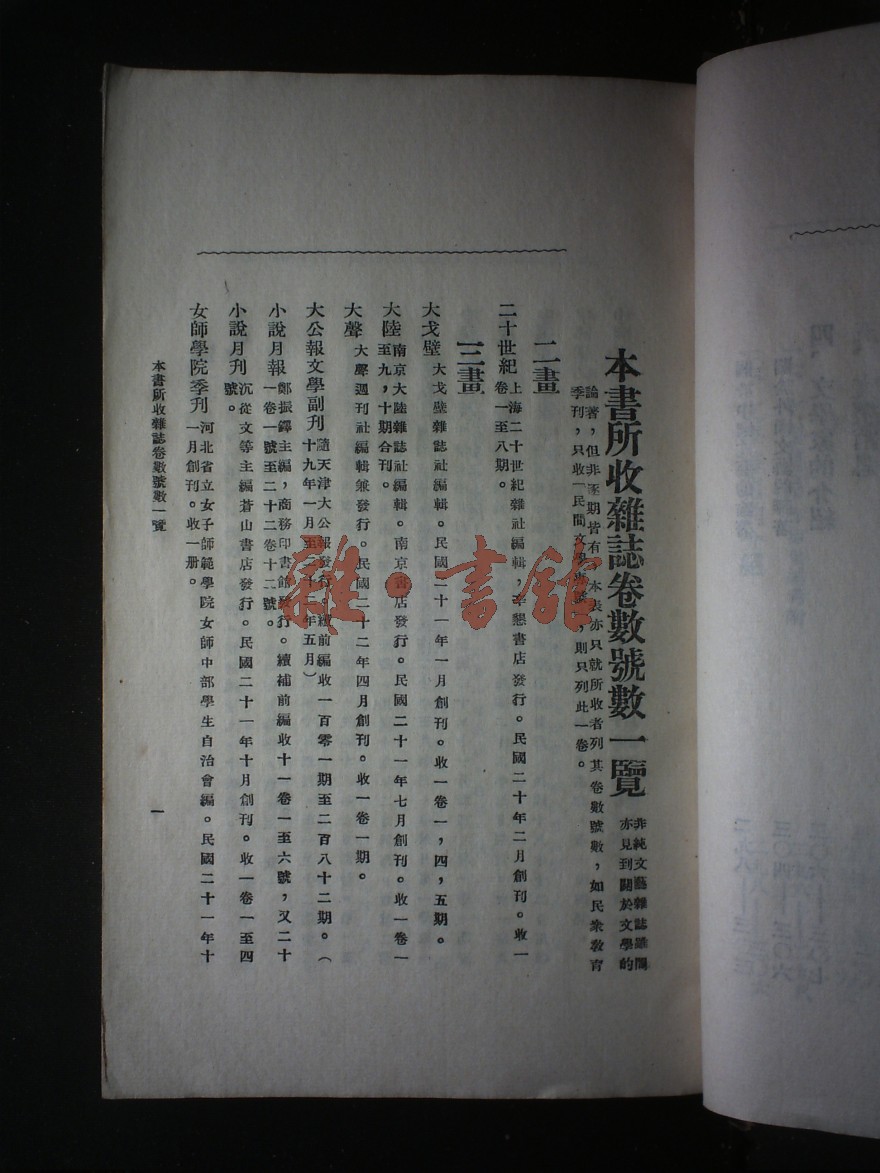 本書所收雜誌卷數號數一覽
非純文藝雜誌雖間
亦見到關於文學的
論著，但非逐期皆有，本表亦只就所收者列其卷數號數，如民衆教育
季刊，只收「民間文學專號」，則只列此一卷。
二畫
二十世紀 上海二十世紀雜社編輯，辛墾書店發行。民國二十年二月創刊。收一
卷一至八期。
三畫
大戈壁 大戈壁雜誌社編輯。民國二十一年一月創刊。收一卷一，四，五期。
大陸 南京大陸雜誌社編輯。南京書店發行。民國二十一年七月創刊。收一卷一
至九，十期合刊。
大聲 大聲週刊社編輯兼發行。民國二十二年四月創刊。收一卷一期。
大公報文學副刊 隨天津大公報發行。續前編收一百零一期至二百八十二期。（
十九年一月至二十二年五月）
小說月報 鄭振鐸主編，商務印書館發行。續補前編收十一卷一至六號，又二十
一卷一號至二十二卷十二號。
小說月刊 沉從文等主編蒼山書店發行。民國二十一年十月創刊。收一卷一至四
號。
女師學院季刊 河北省立女子師範學院女師中部學生自治會編。民國二十一年十
一月創刊。收一册。
本書所收雜誌卷數號數一覽
一
雜·書舘